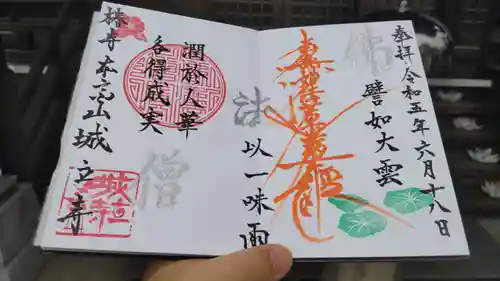 奉拝 令和五年六月十八日
佛
譬如大雲
南無妙法蓮華経
法
以一味雨
潤於人華
各得成実
僧
城立寺